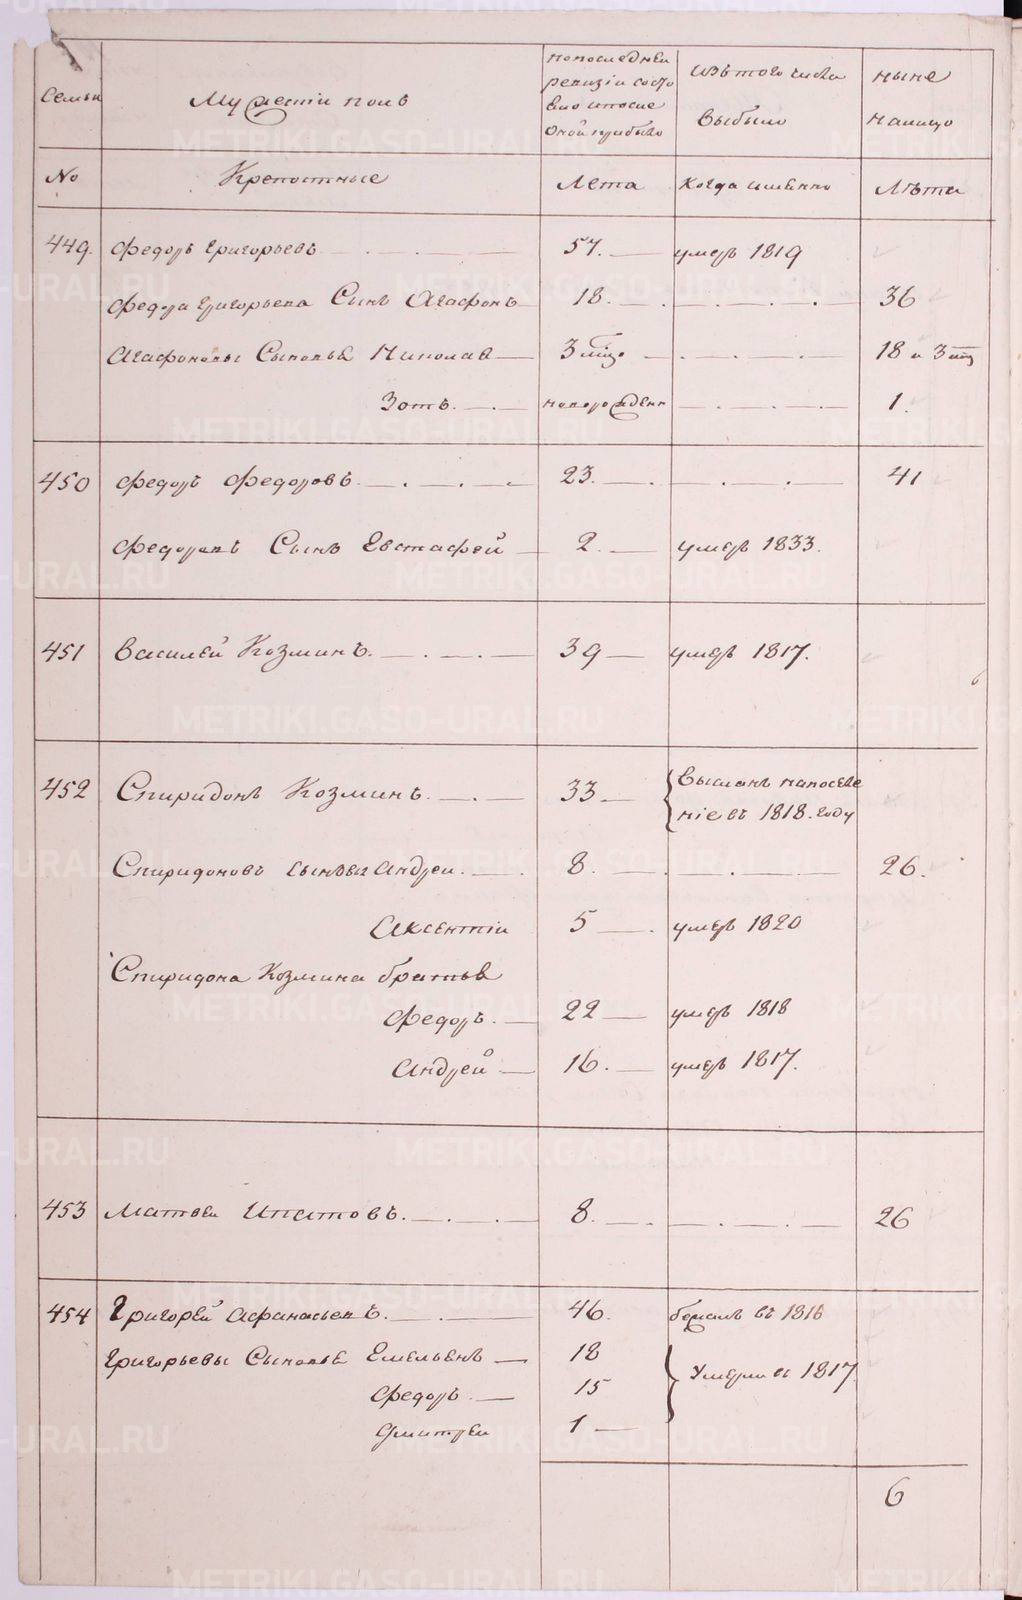 Семьи
Мужескiй полъ
По последней
ревизiи состо
яло и после
оной прибыло
Изъ того числа
выбыло
Ныне
на лицо
No
Крепостные
Лета
Когда именно
Лѣта
449. Федоръ Григорьевъ 57. умеръ 1819
Федора Григорьева Сынъ Агафонъ 18. 36
Агафоновы Сыновья Николай 3 мѣсц 18 и 3 мц
Зотъ. новорожден 1.
450 Федоръ Федоровъ 23. 41
Федоровъ Сынъ Евстафей 2. умеръ 1833.
451 Василей Козминъ. 39 умеръ 1817.
452 Спиридонъ Козминъ. 33 Высланъ на поселе
нiе въ 1818. году
Спиридоновы сыновья Андреи. 8. 26.
Аксентiи 5 умеръ 1820
Спиридона Козмина братья
Федоръ. 22 умеръ 1818
Андрей 16. умеръ 1817.
453 Матвеи Ипатовъ. 8. 26
454 Григорей Афанасьевъ. 46. бежалъ въ 1816
Григорьевы Сыновья Емельянъ 18
Умерли въ 1817.
Федоръ 15
Дмитреи 1
6
METRIKI.GASO-URAL.RU